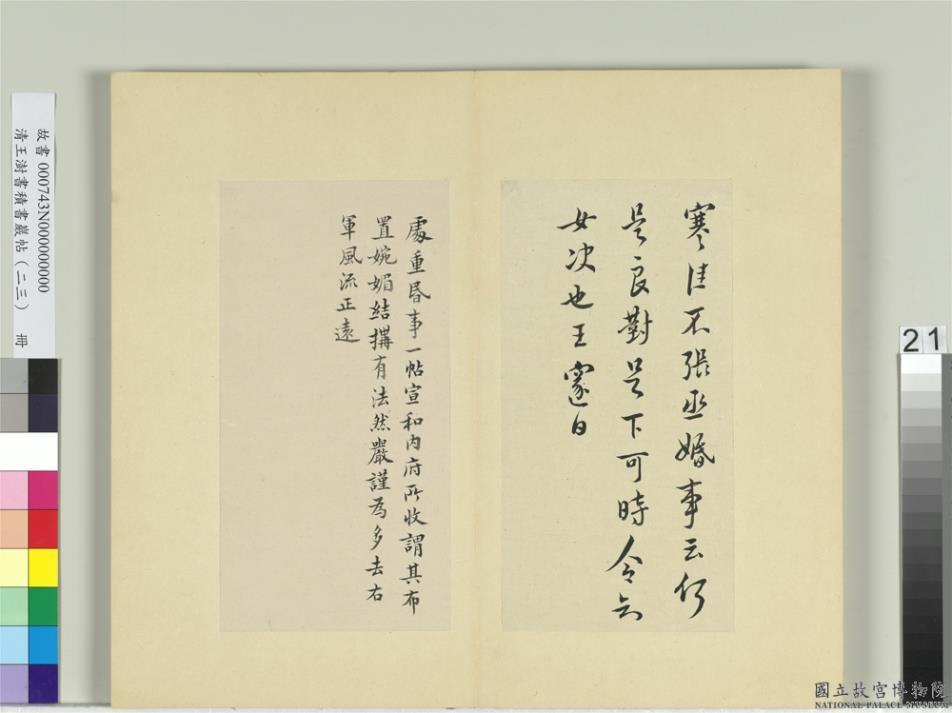 寒佳不張丞婚事云何
是良對是下可時令知
女決也王邃白
處重昏事一帖宣和內府所收謂其布
置婉媚結搆有法然嚴謹為多去右
軍風流正遠
故書 000743N000000000
清王澍書積書巖帖(二三) 冊
21
國立故宮博物院
NATIONAL PALACE MUSEUM